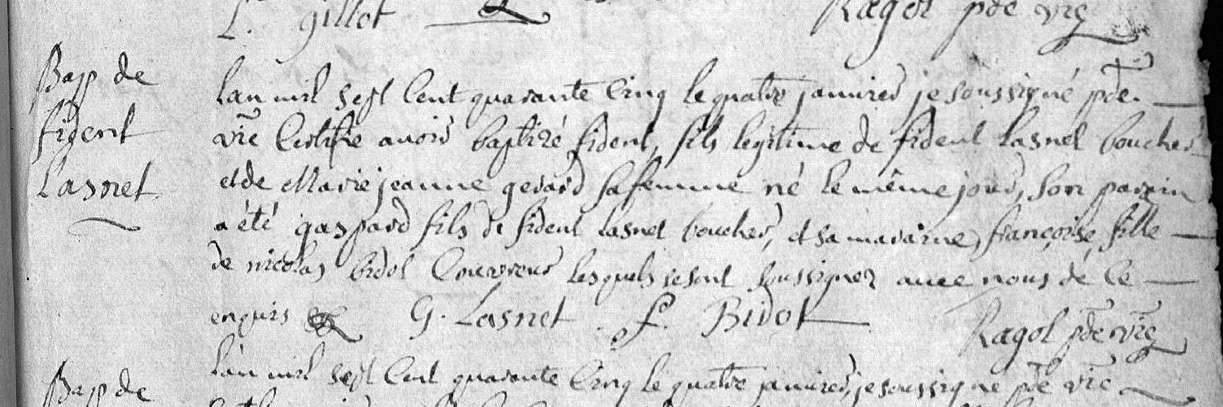 f. gillot Ragol ptre vic
Bap de
fident
Lasnet
Lan mil sept Cent quarante Cinq le quatre janvier je soussigné ptre
vic Certifie avoir baptizé fident, fils legitime de fident Lasnet boucher
et de Marie jeanne gerard sa femme né le même jour, son parain
a été gaspard fils de fident Lasnet boucher, et sa maraine françoise fille
de nicolas bidot Couvreur lesquels se sont soussignez avec nous de ce
enquis G. Lasnet f. Bidot Ragol ptre vic
Bap de
Lan mil sept Cent quarante Cinq le quatre janvier, je soussigne ptre vic